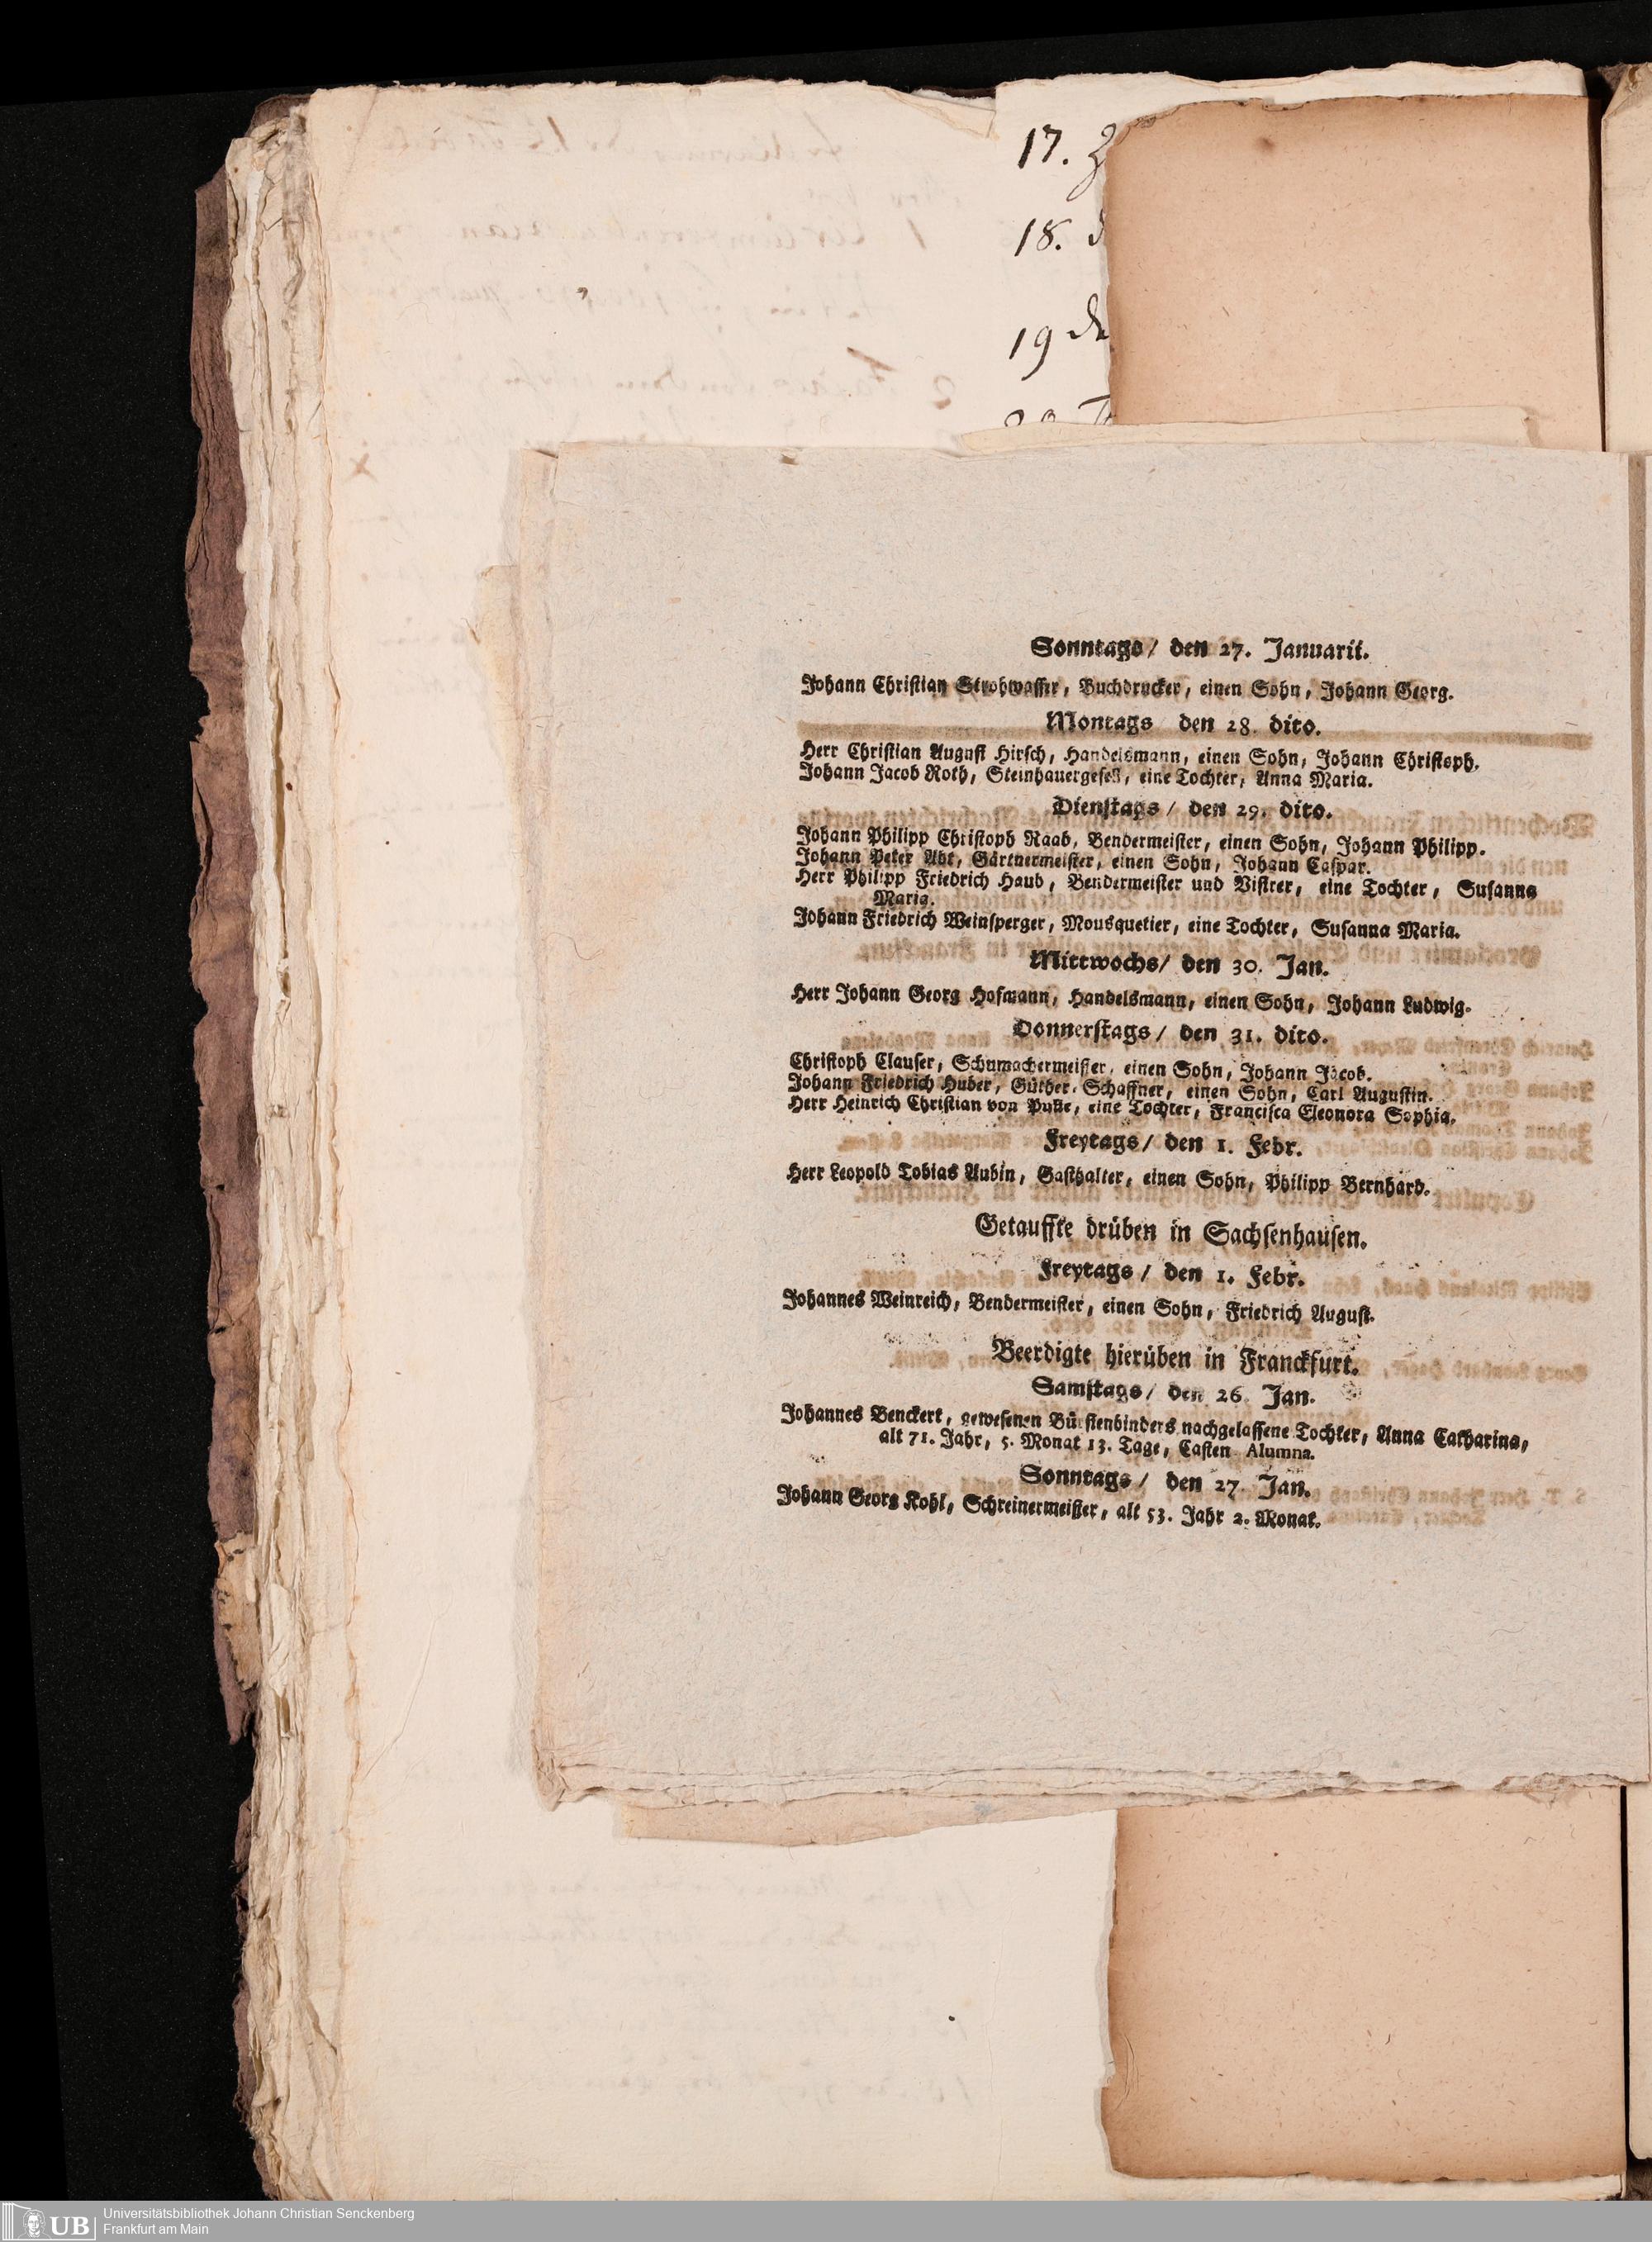 17.
18.
19
Sonntags / den 27. Januarii.
Johann Christian Strohwasser, Buchdrucker, einen Sohn, Johann Georg.
Montags den 28. dito.
Herr Christian August Hirsch, Handelsmann, einen Sohn, Johann Christoph.
Johann Jacob Roth, Steinhauergesell, eine Tochter, Anna Maria.
Dienstags / den 29. dito.
Johann Philipp Christoph Raab, Bendermeister, einen Sohn, Johann Philipp.
Johann Peter Abt, Gärtnermeister, einen Sohn, Johann Caspar.
Herr Philipp Friedrich Haub, Bendermeister und Visirer, eine Tochter, Susanna
Maria.
Johann Friedrich Weinsperger, Mousquetier, eine Tochter, Susanna Maria.
Mittwochs / den 30. Jan.
Herr Johann Georg Hofmann, Handelsmann, einen Sohn, Johann Ludwig.
Donnerstags / den 31. dito.
Christoph Clauser, Schumachermeister, einen Sohn, Johann Jacob.
Johann Friedrich Huber, Güther-Schaffner, einen Sohn, Carl Augustin.
Herr Heinrich Christian von eine Tochter, Francisca Eleonora Sophia.
Freytags / den 1. Febr.
Herr Leopold Tobias Aubin, Gasthalter, einen Sohn, Philipp Bernhard.
Getauffte drüben in Sachsenhausen.
Freytags / den 1. Febr.
Johannes Weinreich, Bendermeister, einen Sohn, Friedrich August.
Beerdigte hierüben in Franckfurt.
Samstags / den 26. Jan.
Johannes Benckert, gewesenen Bürstenbinders nachgelassene Tochter, Anna Catharina,
alt 71. Jahr, 5. Monat 13. Tage, Casten-Alumna.
Sonntags / den 27. Jan.
Johann Georg Kohl, Schreinermeister, alt 53. Jahr 2. Monat.
UB
Universitätsbibliothek Johann Christian Senckenberg
Frankfurt am Main